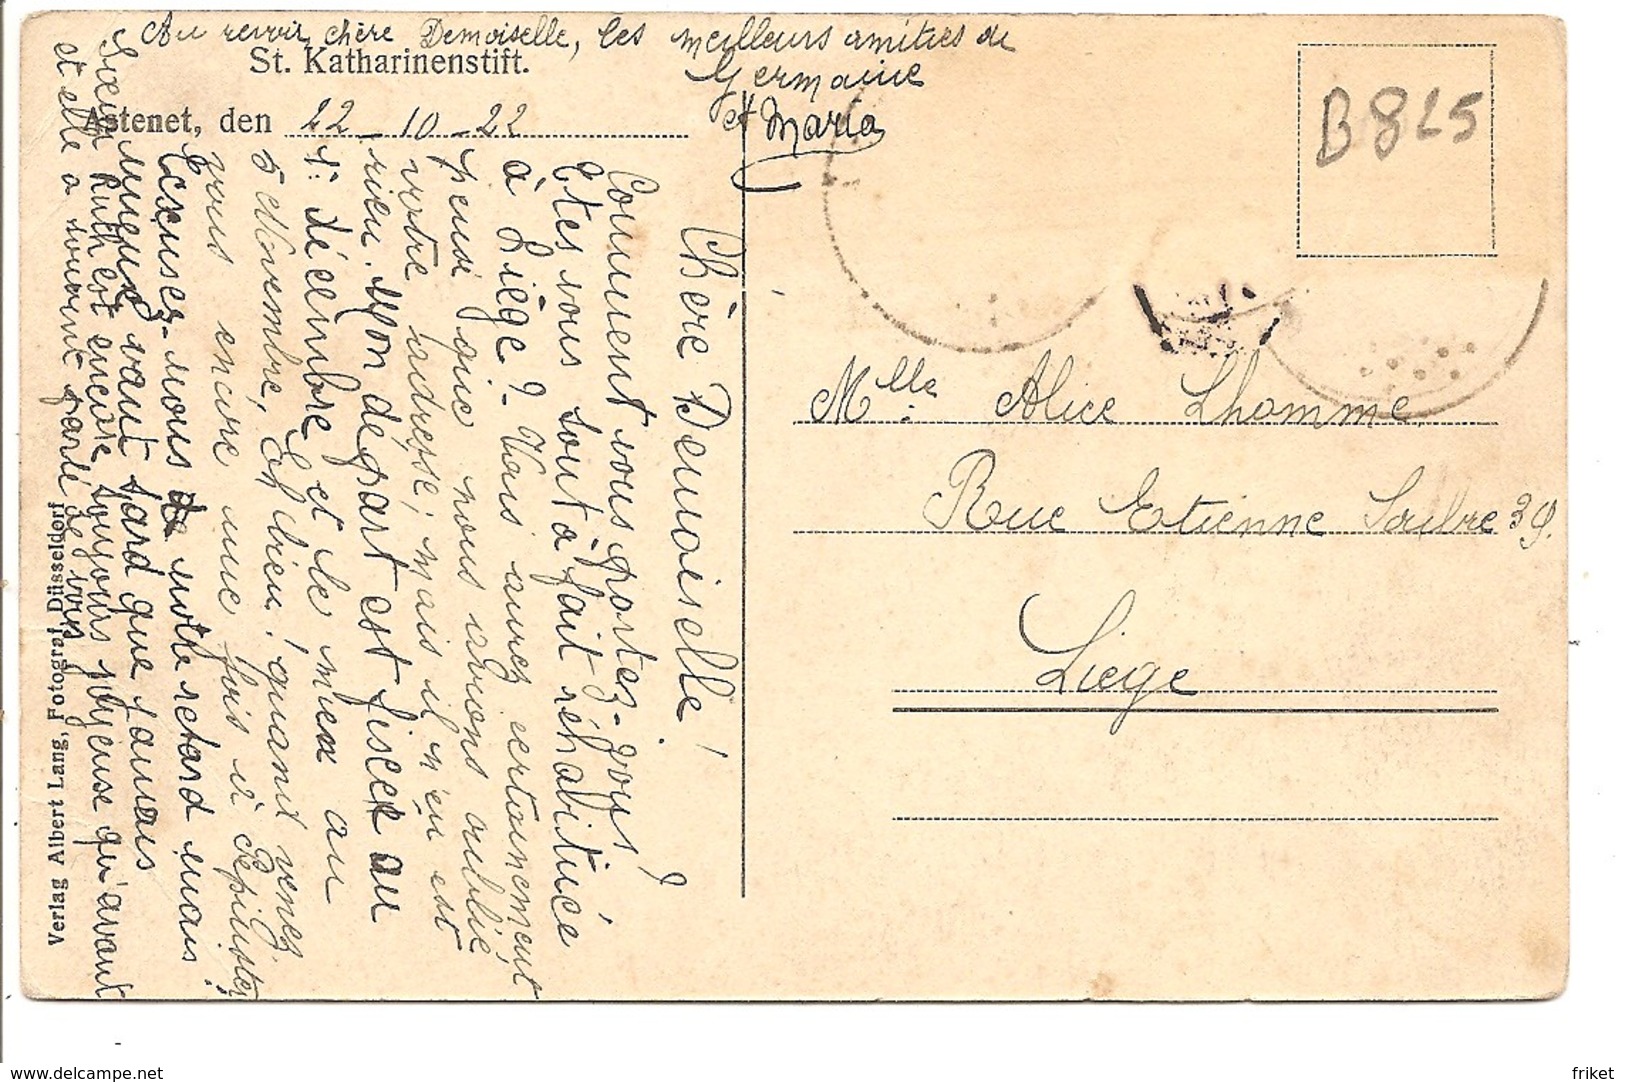 Au revoir, chère Demoiselle, les meilleurs amitiés de
Germaine
et Maria
St. Katharinenstift.
Astenet, den 22-10-22
Chère Demoiselle!
Comment vous portez-vous?
Etes vous tout à fait réhabituée
à Liège? Vous aurez certainement
pensé que nous avions oublié
votre adresse; mais il n'en est
rien. Mon départ est fixer au
1r. décembre et le mien au
5 Novembre, Eh bien! quand venez
vous encore une fois à Pepinster,
Excusez-nous de notre retard mais
mieux vaut tard que jamais
Soeur Ruth est encore toujours joyeuse qu'avant
et elle a souvent parlé de vous
Verlag Albert Lang, Fotograf Düsseldorf
B825
Mlle. Alice Lhomme
Rue Etienne Soubre 39.
Liège
www.delcampe.net
friket